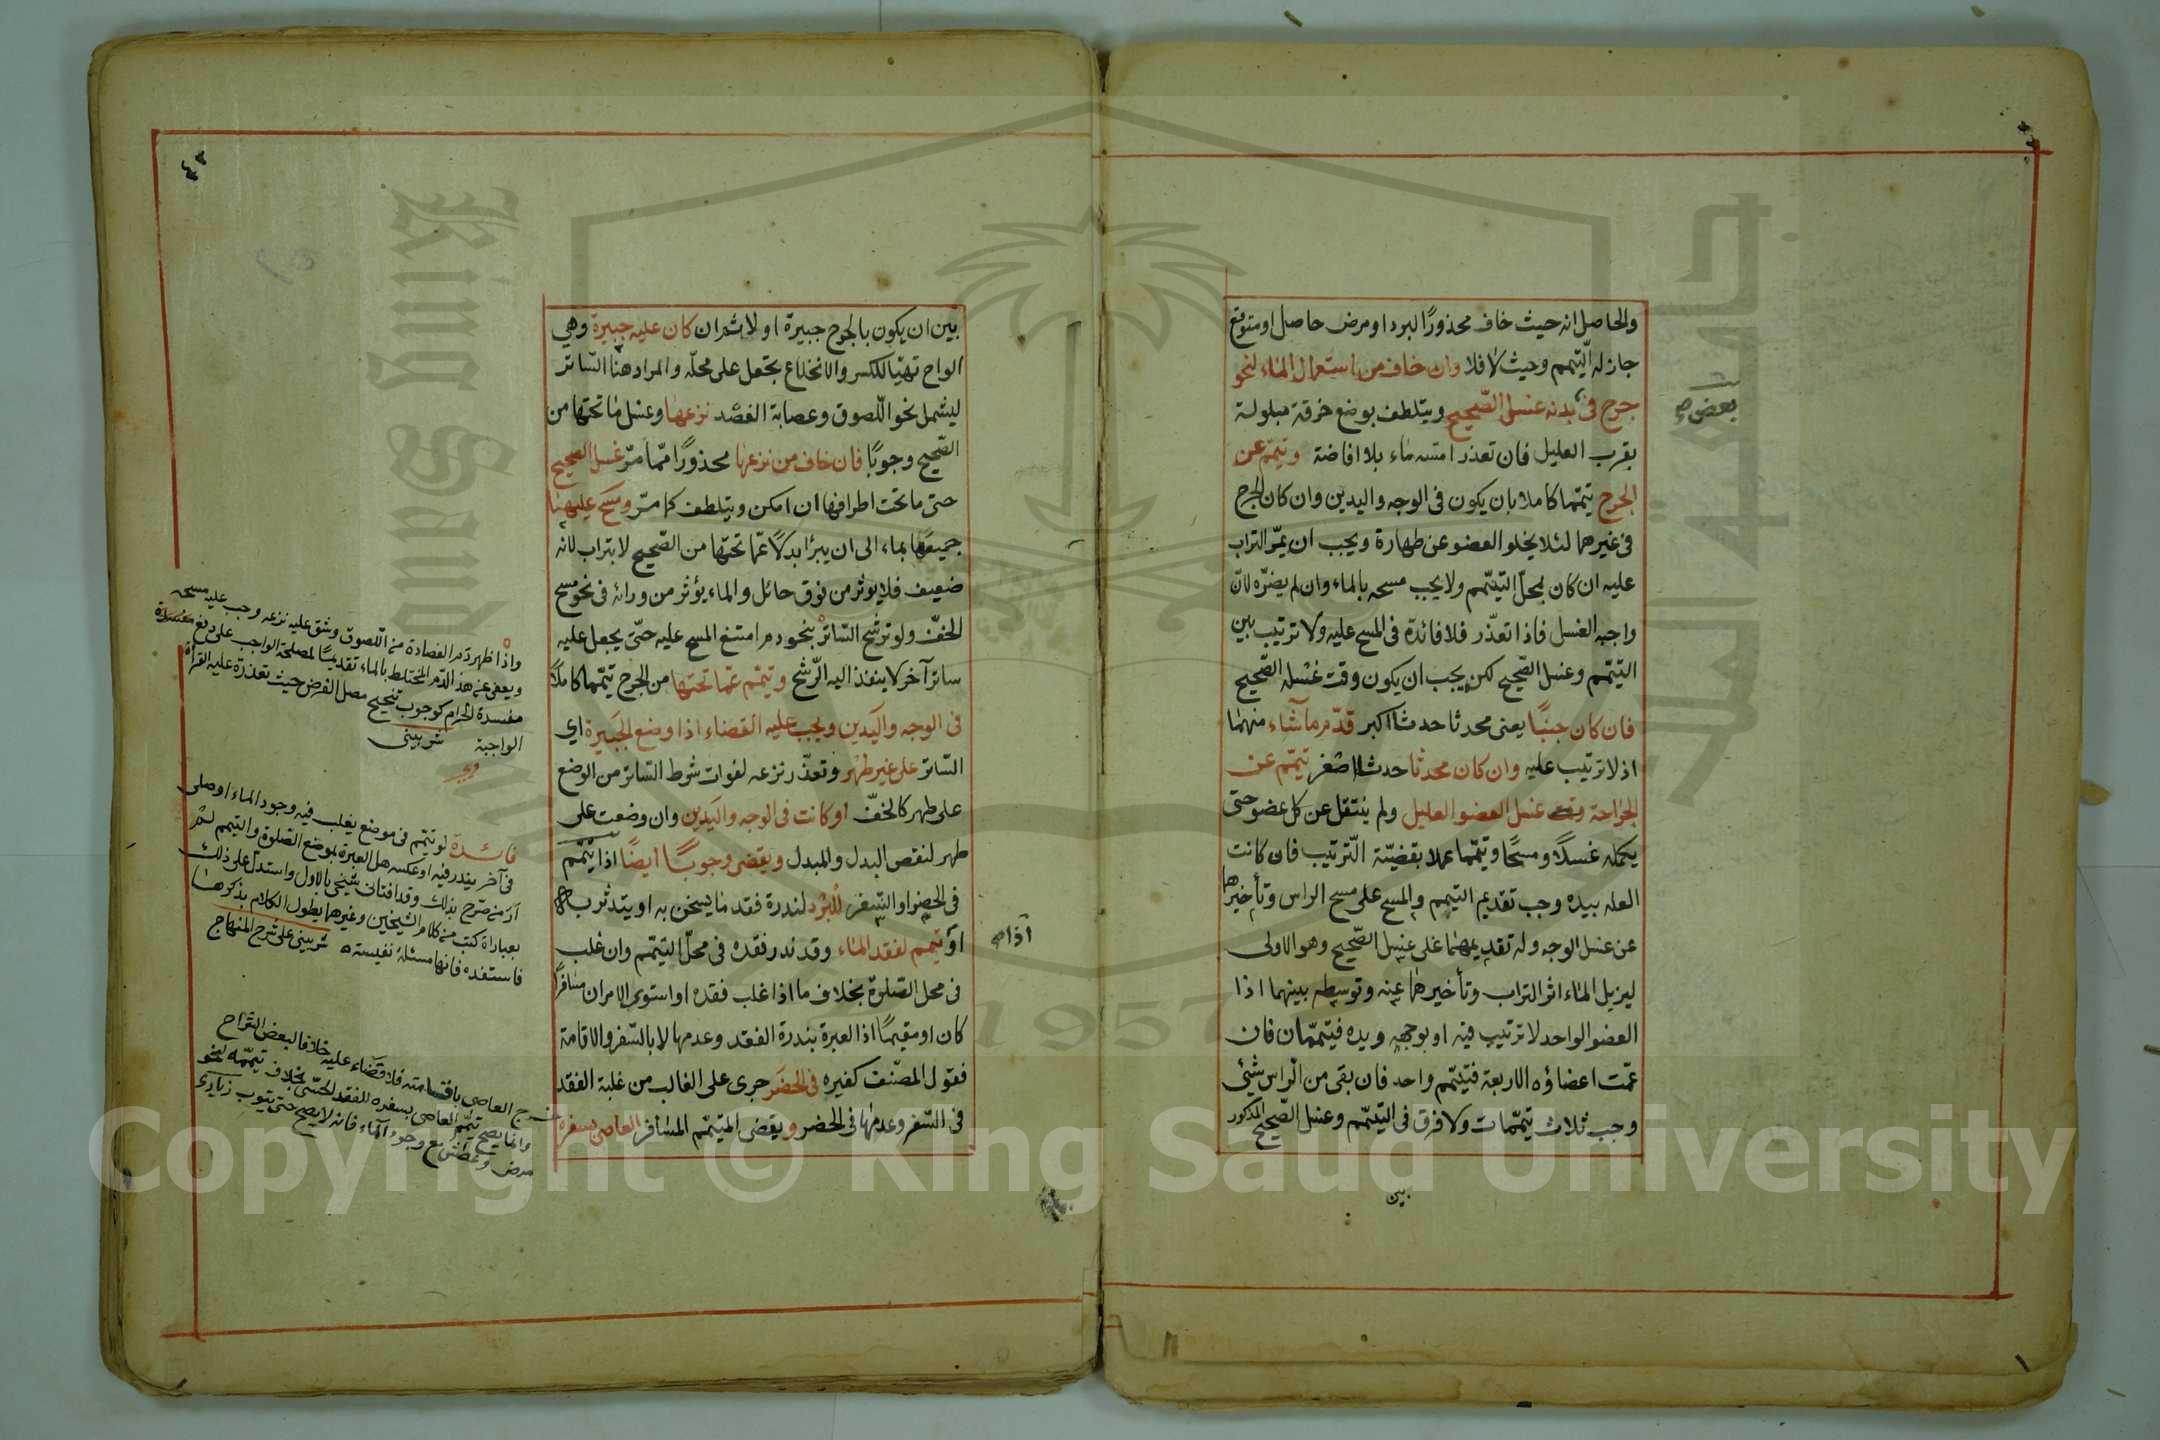 والحاصل انه حيث خاف محذورًا لبرد او مرض حاصل او متوقع
جاز له التيمم وحيث لا فلا وان خاف من استعمال الماء لنحو
جرح في بدنه غسل الصّحيح ويتلطف بوضع خرقة مبلولة
بقرب العليل فان تعذر امسه ماء بلا افاضة وتيمّم عن
الجرح تيمّما كاملا بان يكون في الوجه واليدين وان كان الجرح
في غيرهما لئلا يخلو العضو عن طهارة ويجب ان يمرّ التراب
عليه ان كان بمحلّ التيمّم ولا يجب مسحه بالماء وان لم يضرّه لانّ
واجبه الغسل فاذا تعذّر فلا فائدة في المسح عليه ولا ترتيب بين
التيمّم وغسل الصّحيح لكن يجب ان يكون وقت غسله الصّحيح
فان كان جنبًا يعني محدثا حدثا اكبر قدّم ما شاء منهما
اذ لا ترتيب عليه وان كان محدثا حدثا اصغر تيمّم عن
الجراحة وقت غسل العضو العليل ولم ينتقل عن كل عضو حتى
يكمله غسلًا ومسحًا وتيمّما عملا بقضيّة التّرتيب فان كانت
العله بيده وجب تقديم التيمم والمسح على مسح الراس وتأخيرهما
عن غسل الوجه وله تقديمهما على غسل الصّحيح وهو الاولى
ليزيل الماء اثر التراب وتأخيرهما عنه وتوسيطه بينهما اذا
العضو الواحد لا ترتيب فيه او بوجهه ويده فتيممّان فان
عمّت اعضاؤه الاربعة فتيمّم واحد فان بقي من الرّاس شئ
وجب ثلاث تيمّمات ولا فرق في التيمّم وغسل الصّحيح المذكور
بين
بعض صح
بين ان يكون بالجرح جبيرة او لا ثم ان كان عليه جبيرة وهي
الواح تهيّا للكسر والانخلاع تجعل على محلّه والمراد هنا السّاتر
ليشمل نحو اللّصوق وعصابة الفصد نزعها وغسل ما تحتها من
الصّحيح وجوبًا فان خاف من نزعها محذورًا ممّا مرّ غسل الصحيح
حتى ما تحت اطرافها ان امكن ويتلطف كما مرّ ومسح عليها
جميعها بماء الى ان يبرأ بدلًا عمّا تحتها من الصّحيح لا بتراب لانه
ضعيف فلا يوثر من فوق حائل والماء يؤثر من ورائه في نحو مسح
الخفّ ولو ترشح السّاتر بنحو دم امتنع المسح عليه حتّى يجعل عليه
ساتر آخر لا ينفذ اليه الرّشح ويتيمّم عمّا تحتها من الجرح تيمّما كاملًا
في الوجه واليدين ويجب عليه القضاء اذا وضع الجبيرة اي
السّاتر على غير طهر وتعذّر نزعه لفوات شرط السّاتر من الوضع
على طهر كالخفّ او كانت في الوجه واليدين وان وضعت على
طهر لنقص البدل والمبدل ويقضي وجوبًا ايضًا اذا تيمّم
في الحضر او السّفر للبرد لندرة فقد ما يسخن به او يتدثر به
او تيمم لفقد الماء وقد ندر فقده في محلّ التيمّم وان غلب
في محل الصّلوة بخلاف ما اذا غلب فقده او استوى الامران مسافرًا
كان او مقيمًا اذ العبرة بندرة الفقد وعدمها لا بالسّفر والاقامة
فقول المصنّف كغيره في الحضر جرى على الغالب من غلبة الفقد
في السّفر وعدمها في الحضر ويقضي المتيمّم المسافر العاصي بسفره
واذا ظهر دم الفصادة من اللّصوق وشق عليه نزعه وجب عليه مسحه
ويعفى عن هذا الدّم المختلط بالماء تقديمًا لمصلحة الواجب على دفع مفسدة
مفسدة الحرام كوجوب تنحيح مصلي الفرض حيث تعذرت عليه القرأة
الواجبة شربيني
فائدة لو تيمّم في موضع يغلب فيه وجود الماء وصلى
في آخر يندر فيه او عكسه هل العبرة بموضع الصّلوة او التيمم لم
ار من صرّح بذلك وقد افتاني شيخي بالاول واستدل على ذلك
بعبارات كتب من كلام الشيخين وغيرهما يطول الكلام بذكرها
فاستفده فانها مسئلة نفيسة شربيني على شرح المنهاج
خرج العاصي باقامته فلا قضاء عليه خلافا لبعض الشّراح
وانما يصح تيمّم العاصي بسفره للفقد الحسّي بخلاف تيمّمه لنحو
مرض وعطش مع وجود الماء فانه لا يصح حتى يتوب زيادي
Copyright © King Saud University
King Saud University
جامعة الملك سعود
1957